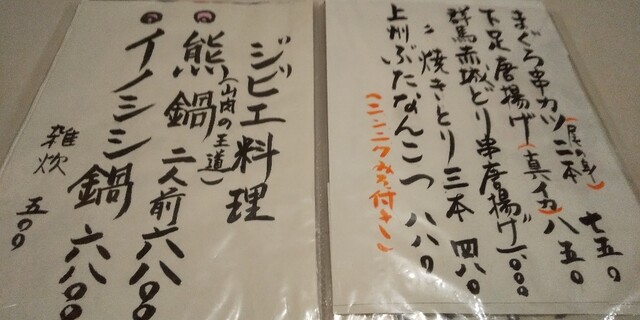 まぐろ串カツ二本(尾の身) 七五〇
下足唐揚げ(真イカ)八五〇
群馬赤城どり串唐揚げ一,〇〇〇
〃 焼きとり三本 四八〇
上州ぶたなんこつ 八八〇
(ニンニクみそ付き)
ジビエ料理
(山肉の王道)
熊鍋 二人前六八〇〇
イノシシ鍋 六八〇〇
雑炊 五〇〇